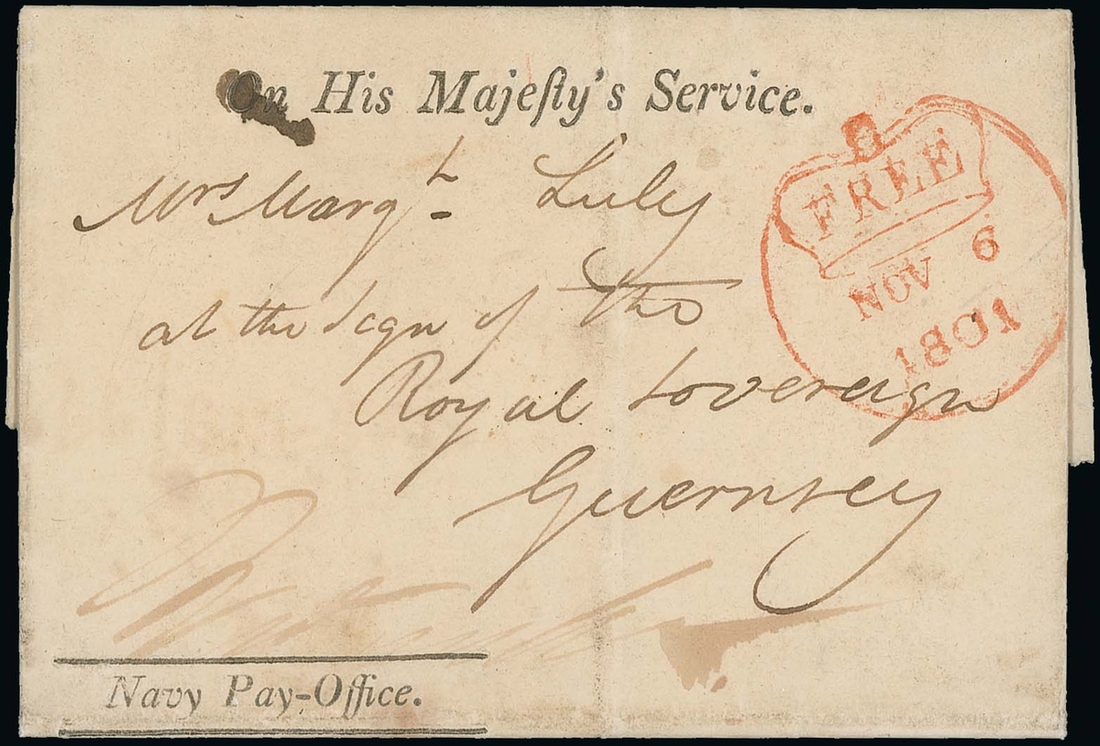 On His Majeſty's Service.
Mrs Margt Luly
at the sign of the
Royal Sovereign
Guernsey
FREE
NOV 6
1801
Navy Pay-Office.